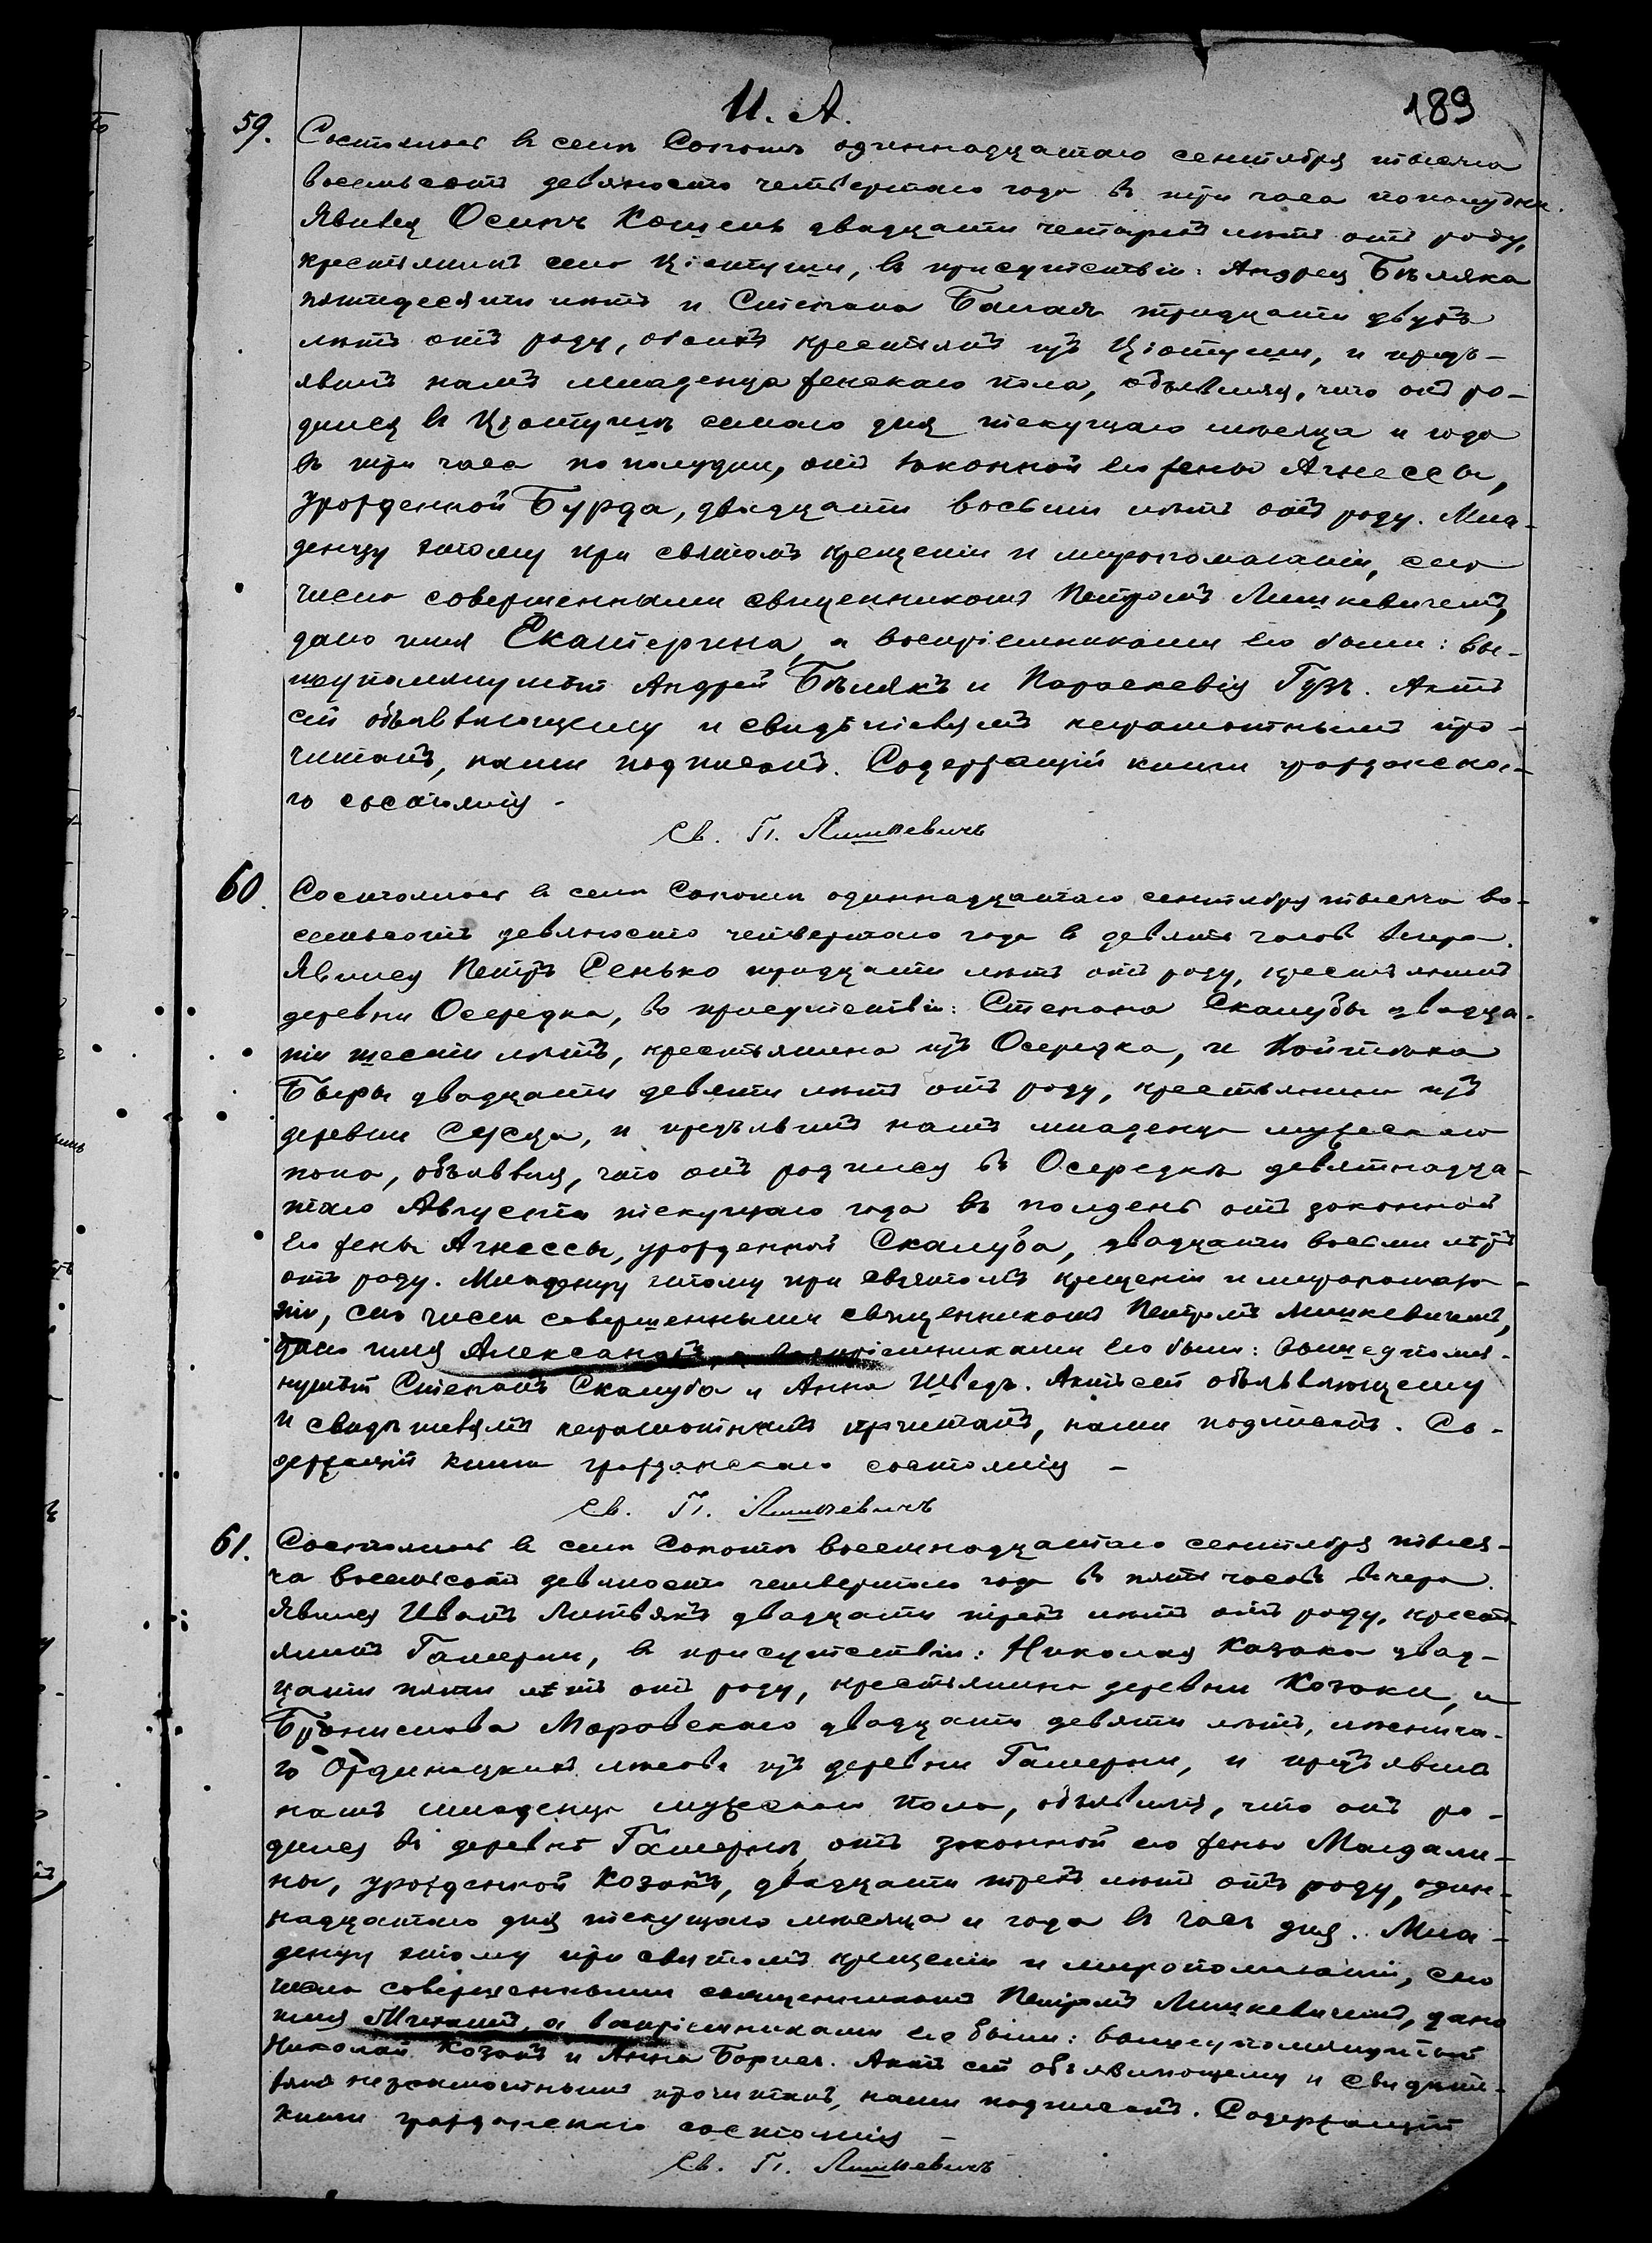 И. А.
189
59.
Состоялось въ селѣ Сопотѣ одиннадцатаго сентября тысяча
восемьсотъ девяносто четвертаго года въ три часа пополудни.
Явился Осипъ Кошель двадцати четырехъ лѣтъ отъ роду,
крестьянинъ села Ціотуши, въ присутствіи: Андрея Бѣляка
пятидесяти лѣтъ и Степана Баная тридцати двухъ
лѣтъ отъ роду, обоихъ крестьянъ изъ Ціотуши, и предъ-
явилъ намъ младенца женскаго пола, объявляя, что онъ ро-
дился въ Ціотушѣ седьмаго дня текущаго мѣсяца и года
въ три часа по полудни, отъ законной его жены Агнессы,
урожденной Бурда, двадцати восьми лѣтъ отъ роду. Мла-
денцу этому при святомъ крещеніи и миропомазаніи, сего
числа совершенными священникомъ Петромъ Лишкевичемъ,
дано имя Екатерина, а воспріемниками его были: вы-
шеупомянутый Андрей Бѣлякъ и Параскевія Гузъ. Актъ
сей объявляющему и свидѣтелямъ неграмотнымъ про-
читанъ, нами подписанъ. Содержащій книги гражданска-
го состоянія -
Св. П. Лишкевичъ
60.
Состоялось въ селѣ Сопотѣ одиннадцатаго сентября тысяча во-
семьсотъ девяносто четвертаго года въ девять часовъ вечера.
Явился Петръ Сенько тридцати лѣтъ отъ роду, крестьянинъ
деревни Осередка, въ присутствіи: Степана Скалубы двадца-
ти шести лѣтъ, крестьянина изъ Осередка, и Войтѣха
Быры двадцати девяти лѣтъ отъ роду, крестьянина изъ
деревни Сусца, и предъявилъ намъ младенца мужескаго
пола, объявляя, что онъ родился въ Осередкѣ девятнадца-
таго Августа текущаго года въ полдень отъ законной
его жены Агнессы, урожденной Скалуба, двадцати восьми лѣтъ
отъ роду. Младенцу этому при святомъ крещеніи и миропомаза-
ніи, сего числа совершенными священникомъ Петромъ Лишкевичемъ,
дано имя Александръ, а воспріемниками его были: вышеупомя-
нутый Степанъ Скалуба и Анна Шведъ. Актъ сей объявляющему
и свидѣтелямъ неграмотнымъ прочитанъ, нами подписанъ. Со-
держащій книги гражданскаго состоянія -
Св. П. Лишкевичъ
61.
Состоялось въ селѣ Сопотѣ восемнадцатаго сентября тыся-
ча восемьсотъ девяносто четвертаго года въ пять часовъ вечера.
Явился Иванъ Литвякъ двадцати трехъ лѣтъ отъ роду, кресть-
янинъ Гамерни, въ присутствіи: Николая Казака двад-
цати пяти лѣтъ отъ роду, крестьянина деревни Козаки, и
Бронислава Маровскаго двадцати девяти лѣтъ, лѣснича-
го Ординацкихъ лѣсовъ изъ деревни Гамерни, и предъявилъ
намъ младенца мужескаго пола, объявляя, что онъ ро-
дился въ деревнѣ Гамерни, отъ законной его жены Магдали-
ны, урожденной Козакъ, двадцати трехъ лѣтъ отъ роду, один-
надцатаго дня текущаго мѣсяца и года въ часъ дня. Мла-
денцу этому при святомъ крещеніи и миропомазаніи, сего
числа совершенными священникомъ Петромъ Лишкевичемъ, дано
имя Михаилъ, а воспріемниками его были: вышеупомянутый
Николай Козакъ и Анна Борнес. Актъ сей объявляющему и свидѣте-
лямъ неграмотнымъ прочитанъ, нами подписанъ. Содержащій
книги гражданскаго состоянія -
Св. П. Лишкевичъ